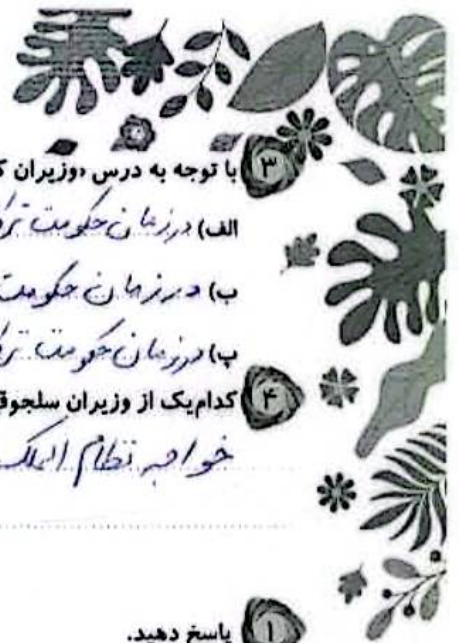 ۳ با توجه به درس «وزیران ک
الف) در زمان حکومت ترک
ب) در زمان حکومت
پ) در زمان حکومت ترک
۴ کدام‌یک از وزیران سلجوق
خواجه نظام الملک
۱ پاسخ دهید.